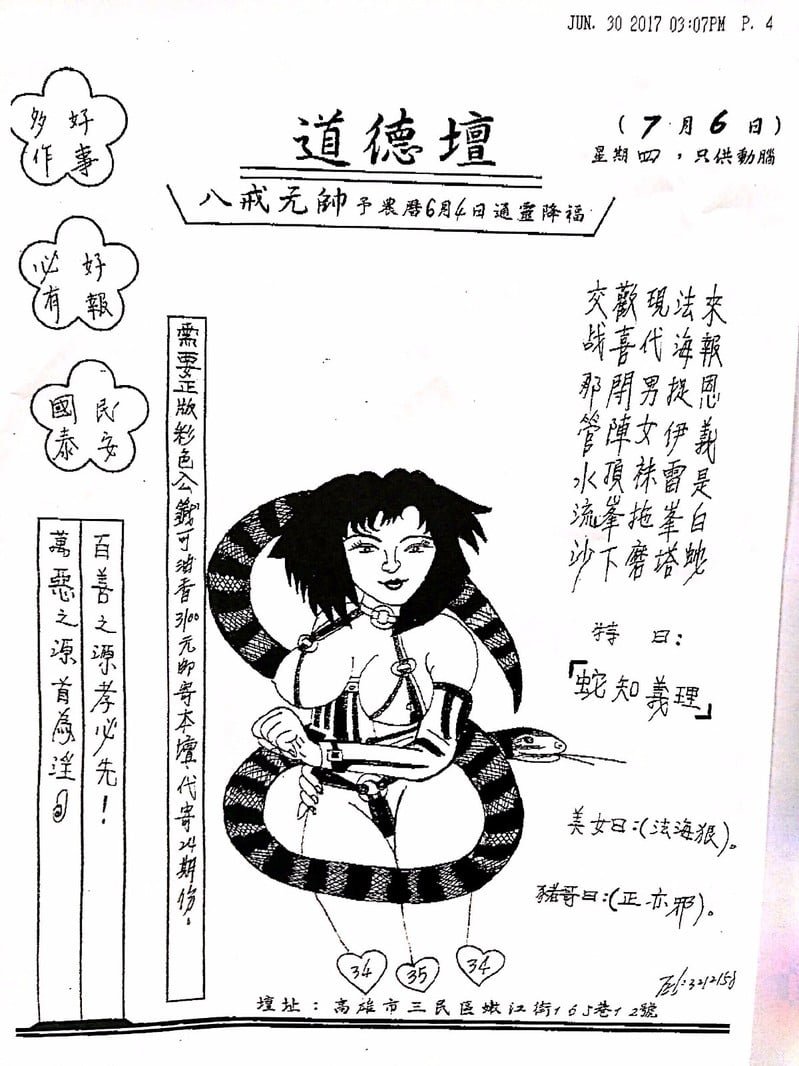 JUN. 30 2017 03:07PM P. 4
道德壇
(7月6日)
星期四，只供動腦
八戒元帥予農曆6月4日通靈降福
好事
多作
好報
必有
民安
國泰
來報恩義是白蛇
法海捉伊雷峯塔
現代男女袜拖磨
歡喜開陣頂峯下
交战那管水流沙
特曰：
「蛇知義理」
美女曰：(法海狠)。
豬哥曰：(正亦邪)。
需要正版彩色公籤可油香3100元郵寄本壇，代寄24期份。
百善之源孝必先！
萬惡之源首為淫
34
35
34
Tel：3212158
壇址：高雄市三民區嫩江街165巷12號